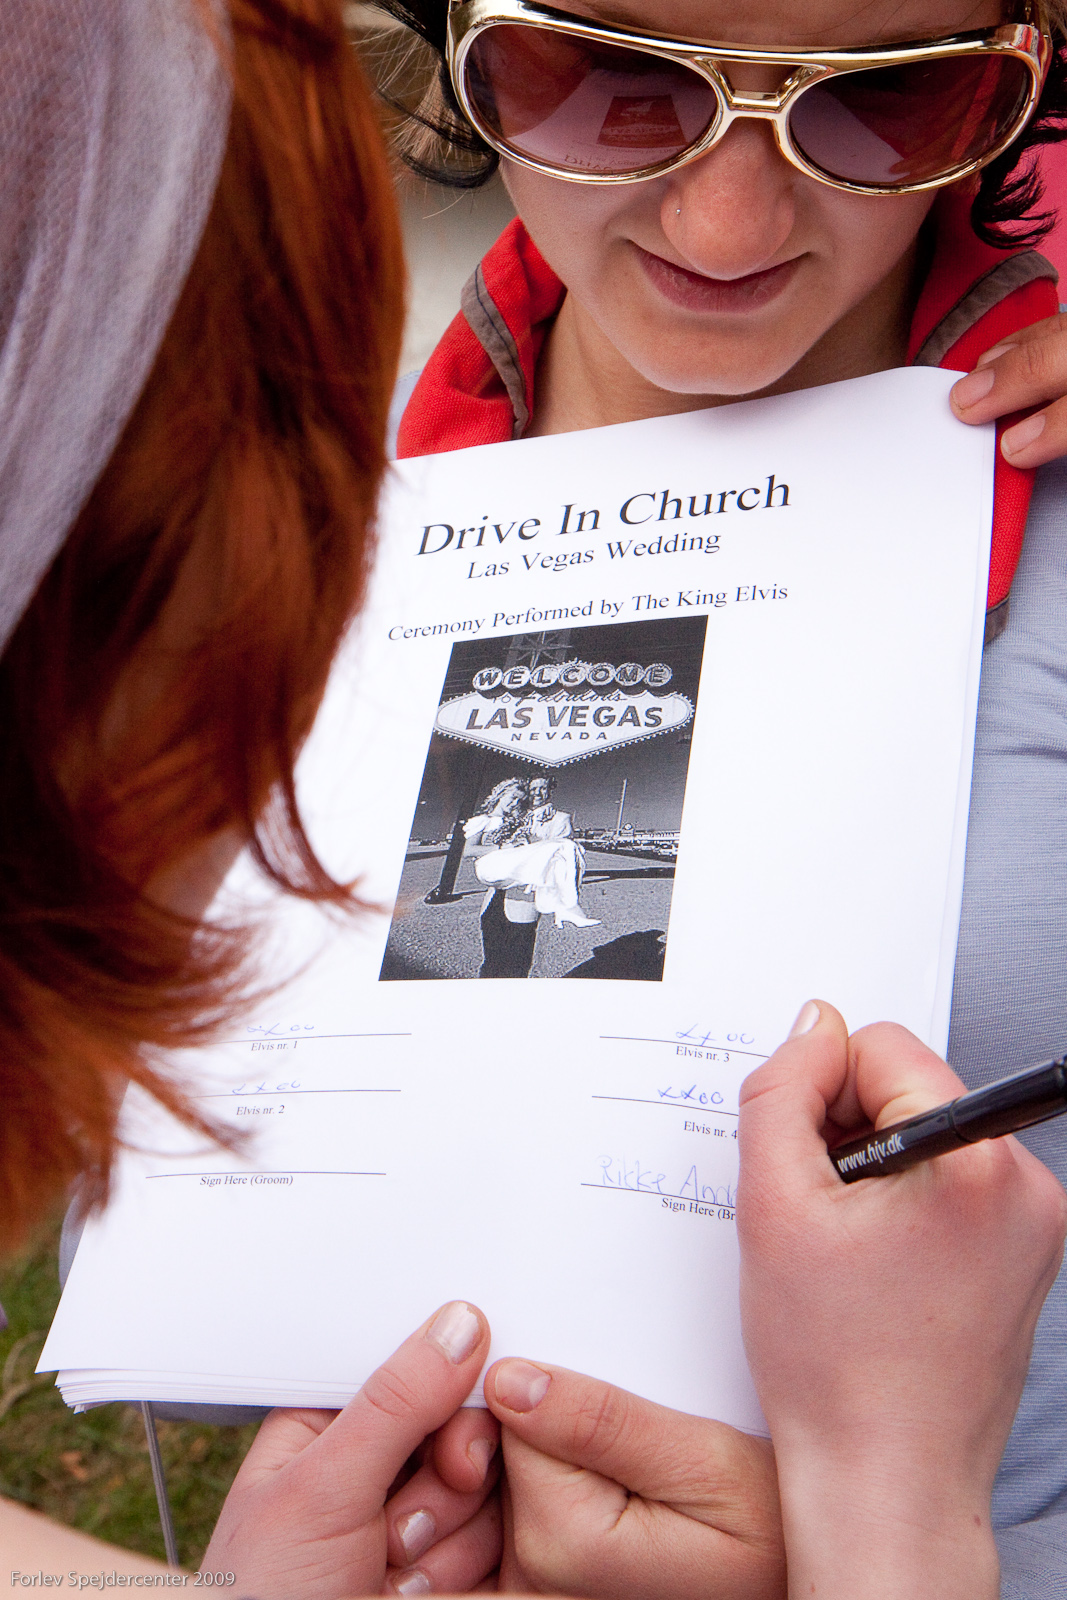 Drive In Church
Las Vegas Wedding
Ceremony Performed by The King Elvis
WELCOME
to Fabulous
LAS VEGAS
NEVADA
Elvis nr. 1
Elvis nr. 3
Elvis nr. 2
Elvis nr. 4
Rikke And
Sign Here (Groom)
Sign Here (Br
www.hjv.dk
Forlev Spejdercenter 2009